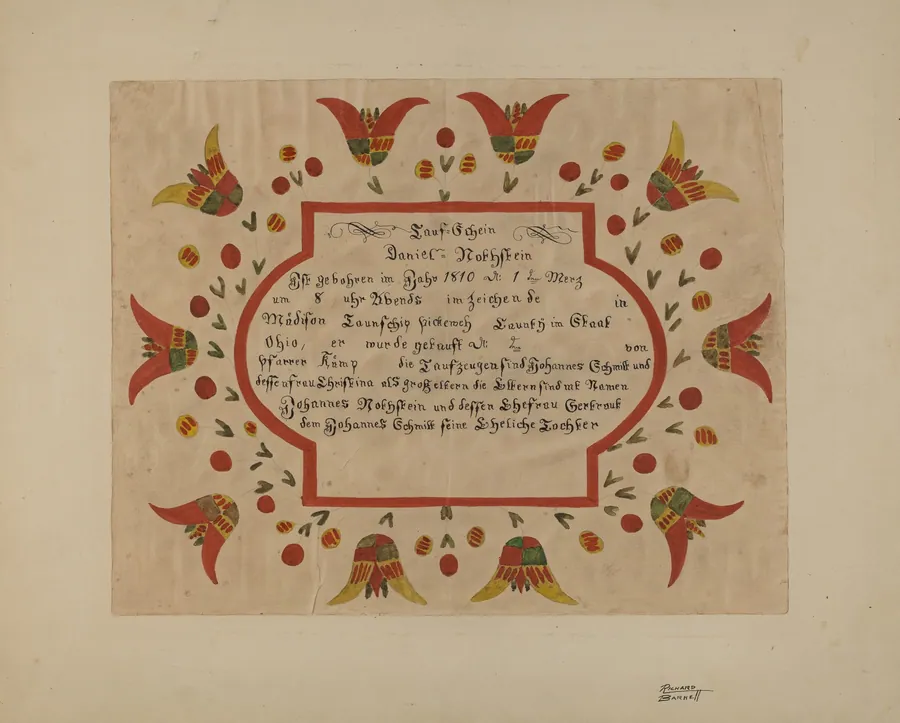 Tauf=Schein
Daniel = Nothstein
Ist gebohren im Jahr 1810 d: 1 ten Merz
um 8 uhr Abends im zeichen de in
Mädison Taunschip pickeweh Caunty im Staat
Ohio, er wurde getauft d: ten von
pfarrer Kämp die Taufzeugen sind Johannes Schmitt und
dessen frau Christina als grosseltern die Eltern sind mit Namen
Johannes Nothstein und dessen Ehefrau Gertraut
dem Johannes Schmitt seine Eheliche Tochter
RICHARD
BARNETT